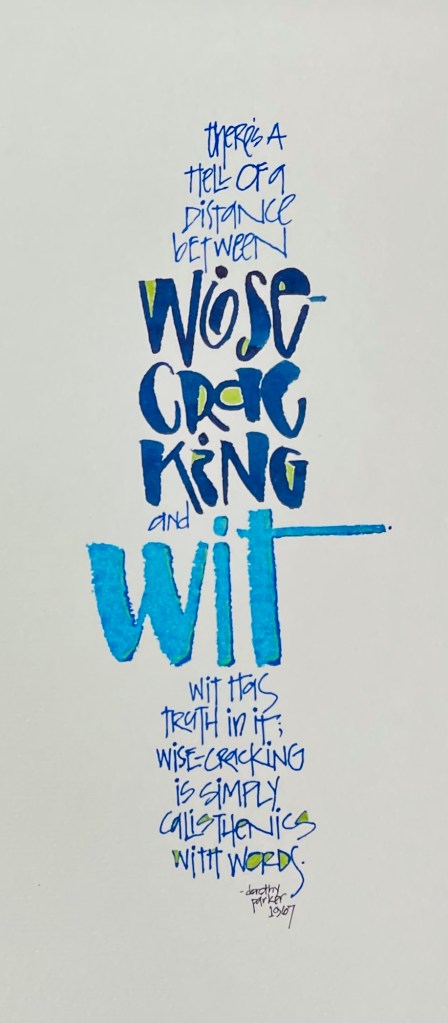 there's A
HELL OF a
DIstaNce
betweeN
WiSe-
CRaC
KiNG
and
wit
wit Has
tRutH in it;
wiSE-CRaCKiNG
iS SiMPLY
CaliStHeNiCS
WitH WORDS.
-dorothy
parker
1967